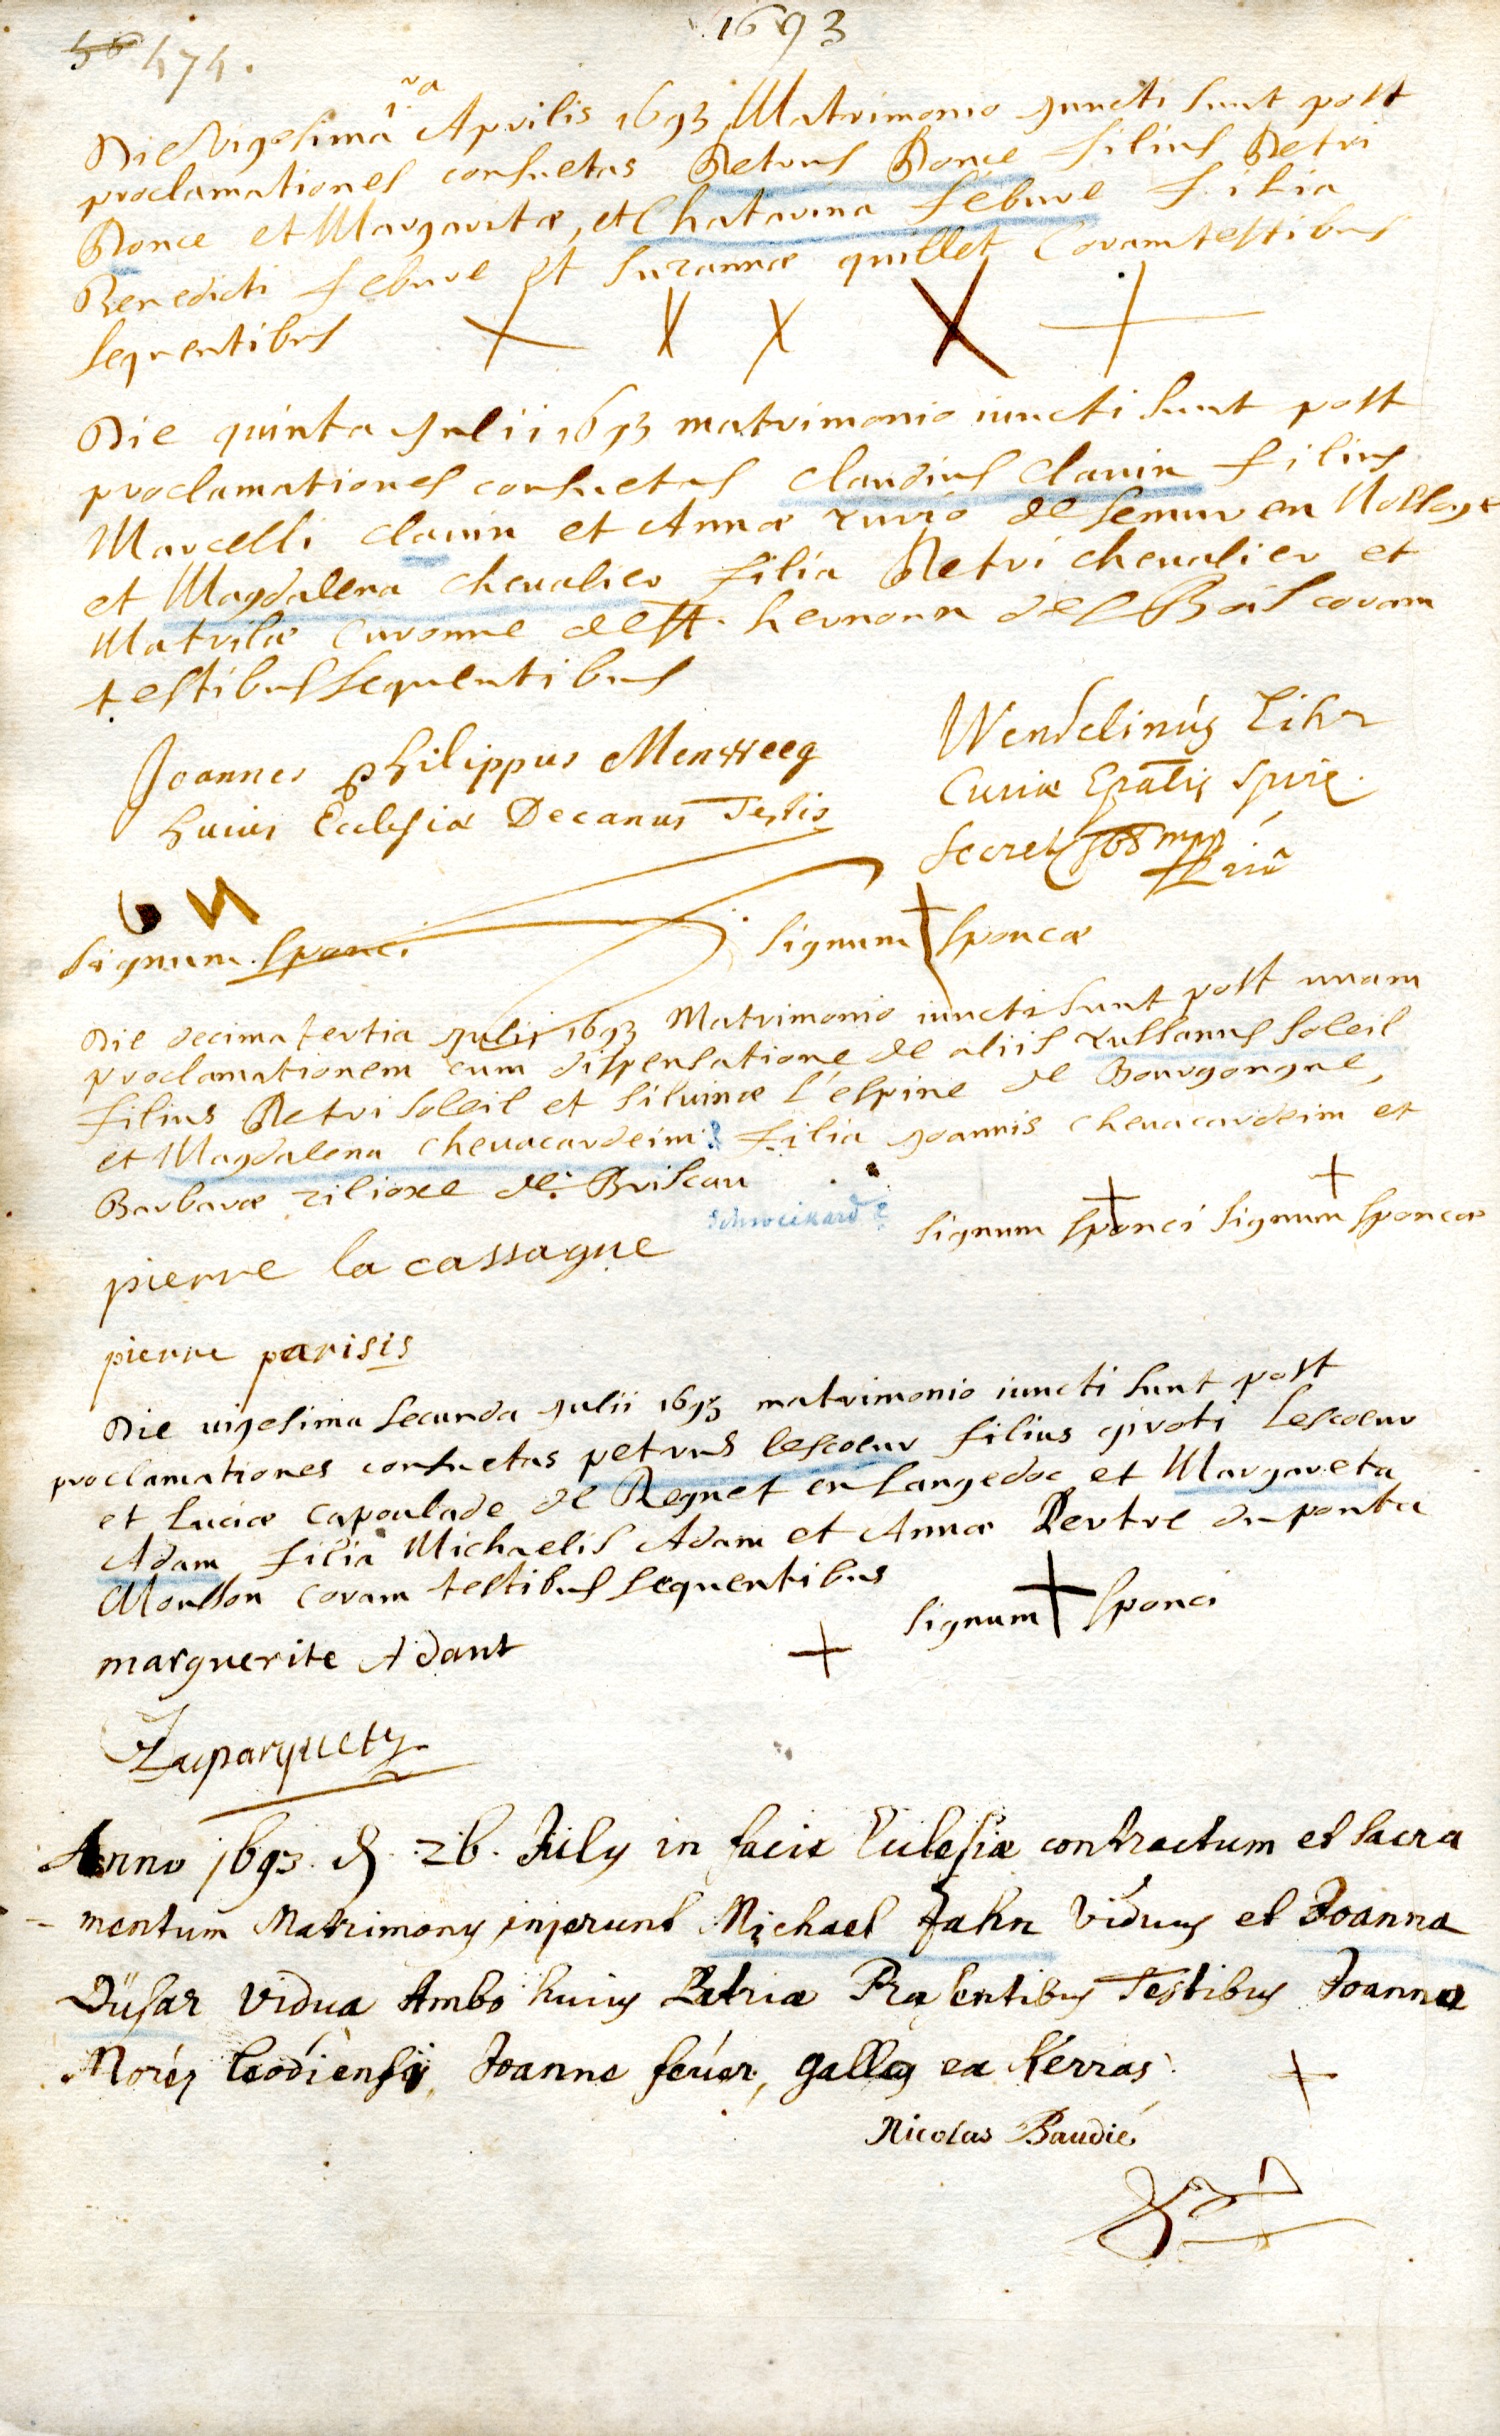 1693
56 474.
Die Vigesimâ 1.ª Aprilis 1693 Matrimonio Juncti sunt post
proclamationes consuetas Petrus Ponce filius Petri
Ponce et Margaritæ, et Chatarina febure filia
Benedicti febure et suzannæ quillet Coram testibus
sequentibus
Die quinta Julii 1693 matrimonio iuncti sunt post
proclamationes consuetas claudius clauin filius
Marcelli clauin et Annæ de semur en
et Magdalena cheualier filia Petri cheualier et
Curonne de st. hernonn de Bois coram
testibus sequentibus
Joannes philippus Menweeg
huius Ecclesiæ Decanus Testis
Wendelinus Lihr
Curiæ Epatis spir.
Secret
signum sponci
signum sponcæ
Die decima tertia Julii 1693 Matrimonio iuncti sunt post unam
proclamationem cum dispensatione de aliis sussanus soleil
filius Petri soleil et siluinæ l'espine de Bourgongne,
et Magdalena cheuacardeim? filia Joannis cheuacardeim et
Barbaræ zilioxe de Briscau
Schweikard?
signum sponci signum sponcæ
pierre la cassagne
pierre parisis
Die uigesima secunda Julii 1693 matrimonio iuncti sunt post
proclamationes consuetas petrus lescoeur filius giroti lescoeur
et luciæ capoulade de Regnet en langedoc et Margareta
Adam filia Michaelis Adam et Annæ Pertre du ponta
Mousson coram testibus sequentibus
signum sponci
marguerite Adant
Zuparquety
Anno 1693. d. 26. July in facie Eclesiæ contractum et sacra
- mentum Matrimony injerunt Michael Jahn Viduus et Joanna
Düsar Vidua Ambo huius Patriæ Præsentibus Testibus Joanne
Moréz leodiensij, Joanne feúer, gallus ex férras.
Nicolas Baudié